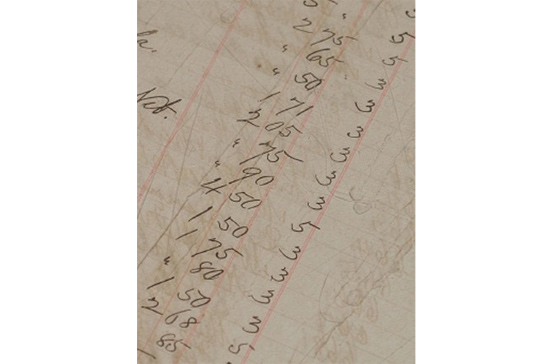 " 5
2 75 5
" 65 3
" 50 3
1 71 3
2 05 3
" 75 3
" 90 3
4 50 5
1 50 3
1 75 3
" 80 3
1 50 3
2 68 5
1 85